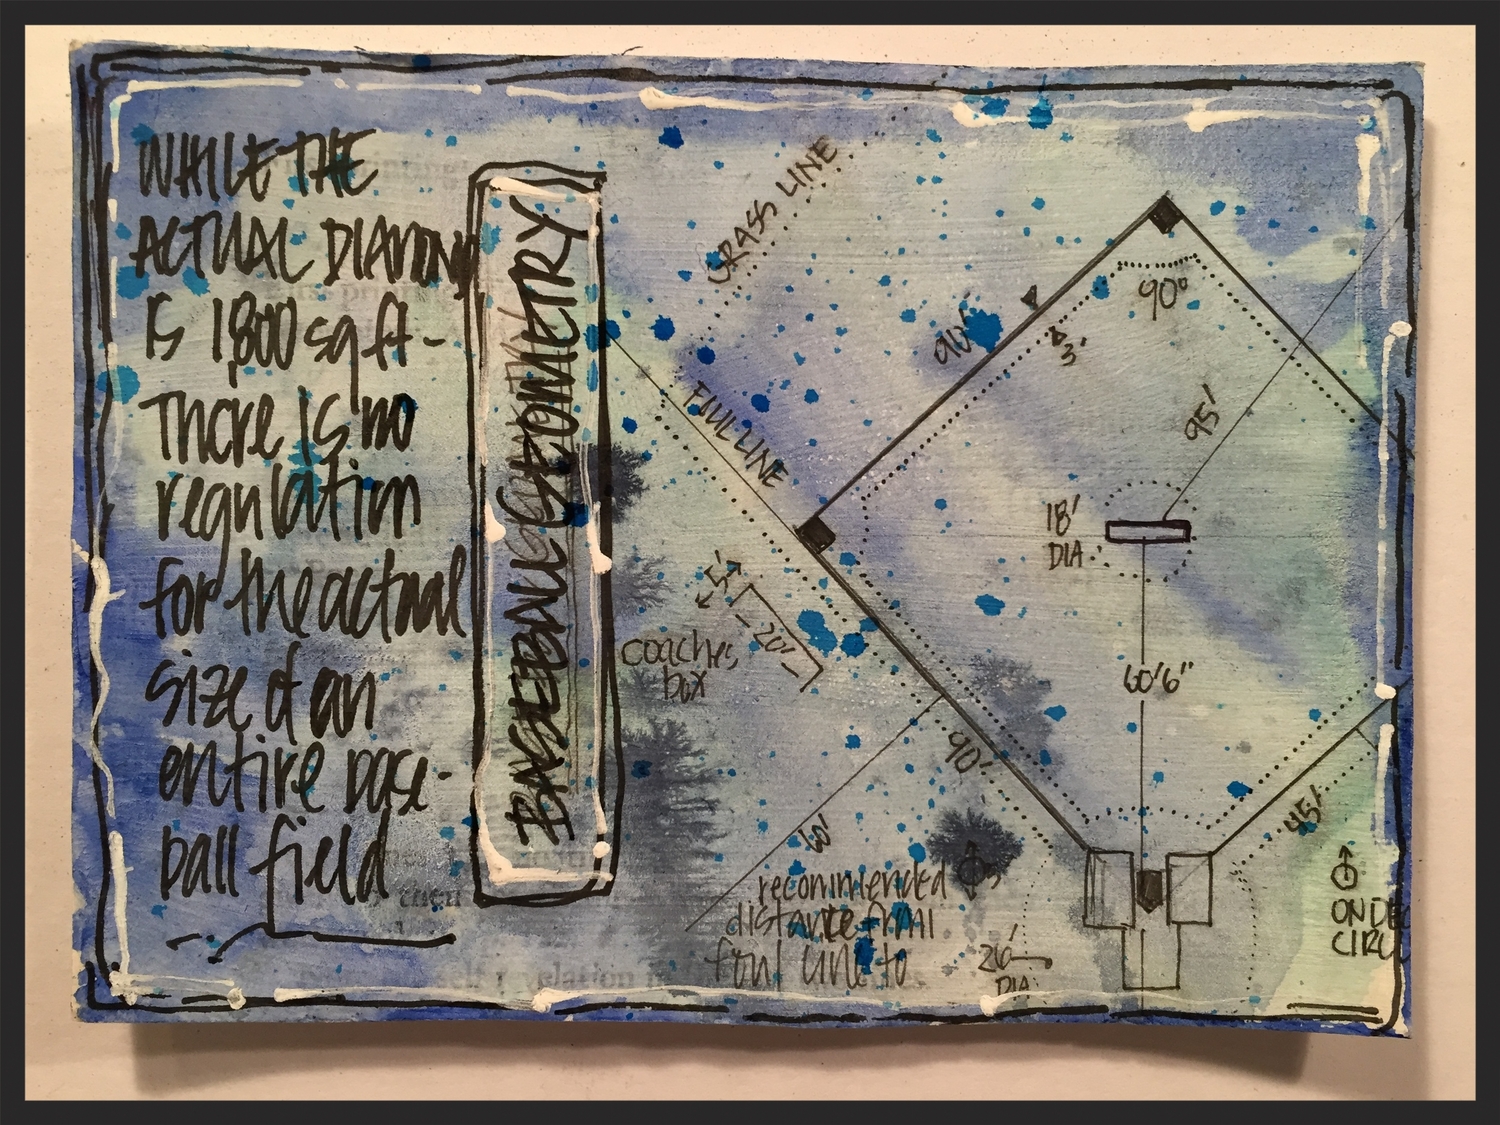 WHILE THE
ACTUAL DIAMOND
IS 1,800 sq ft -
There is no
regulation
for the actual
size of an
entire base-
ball field
BASEBALL GEOMETRY
GRASS LINE
FOUL LINE
90'
3'
90°
95'
18'
DIA.
5'
20'
coaches
box
60'6"
90'
60'
45'
recommended
distance from
foul line to
26'
DIA.
ON DEC
CIRC
then
self revelation